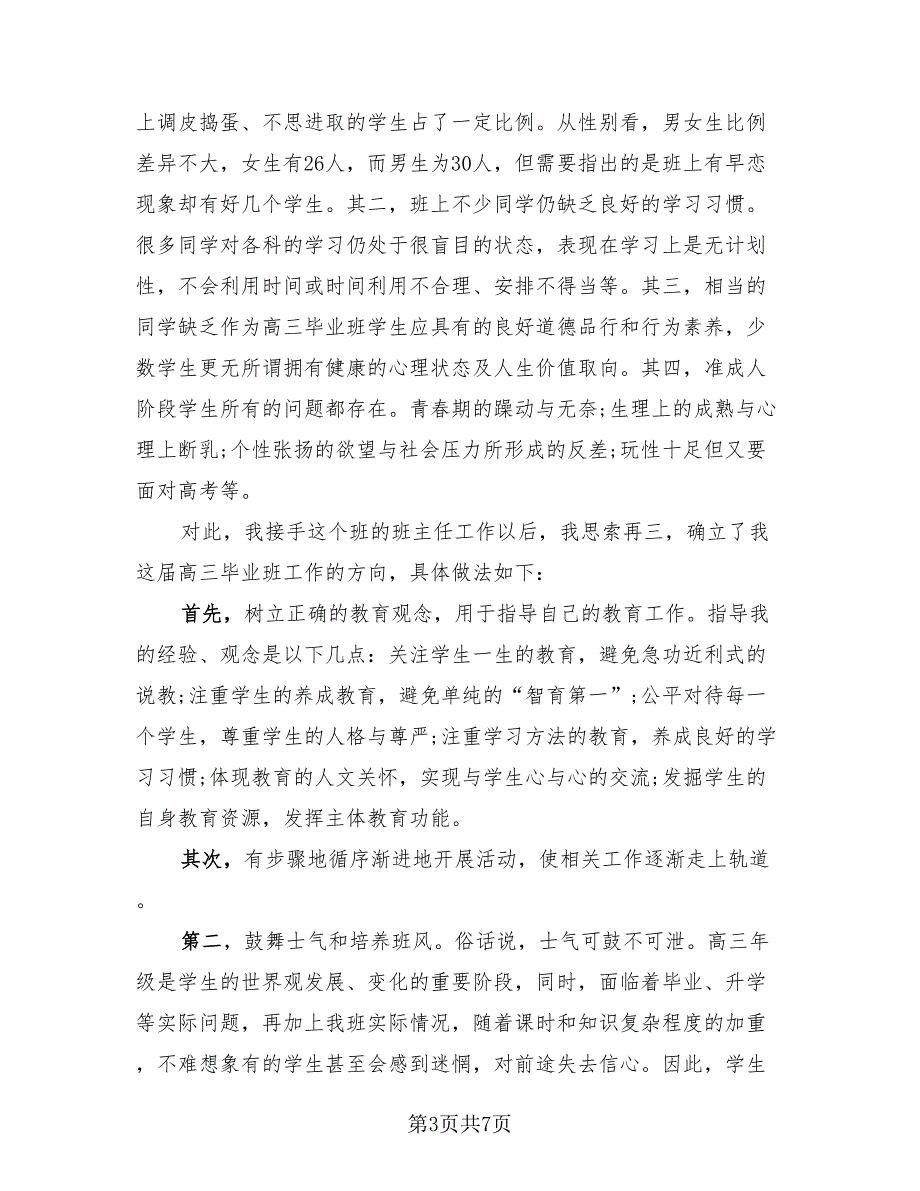 上调皮捣蛋、不思进取的学生占了一定比例。从性别看，男女生比例
差异不大，女生有26人，而男生为30人，但需要指出的是班上有早恋
现象却有好几个学生。其二，班上不少同学仍缺乏良好的学习习惯。
很多同学对各科的学习仍处于很盲目的状态，表现在学习上是无计划
性，不会利用时间或时间利用不合理、安排不得当等。其三，相当的
同学缺乏作为高三毕业班学生应具有的良好道德品行和行为素养，少
数学生更无所谓拥有健康的心理状态及人生价值取向。其四，准成人
阶段学生所有的问题都存在。青春期的躁动与无奈;生理上的成熟与心
理上断乳;个性张扬的欲望与社会压力所形成的反差;玩性十足但又要
面对高考等。
对此，我接手这个班的班主任工作以后，我思索再三，确立了我
这届高三毕业班工作的方向，具体做法如下：
首先，树立正确的教育观念，用于指导自己的教育工作。指导我
的经验、观念是以下几点：关注学生一生的教育，避免急功近利式的
说教;注重学生的养成教育，避免单纯的“智育第一”;公平对待每一
个学生，尊重学生的人格与尊严;注重学习方法的教育，养成良好的学
习习惯;体现教育的人文关怀，实现与学生心与心的交流;发掘学生的
自身教育资源，发挥主体教育功能。
其次，有步骤地循序渐进地开展活动，使相关工作逐渐走上轨道
。
第二，鼓舞士气和培养班风。俗话说，士气可鼓不可泄。高三年
级是学生的世界观发展、变化的重要阶段，同时，面临着毕业、升学
等实际问题，再加上我班实际情况，随着课时和知识复杂程度的加重
，不难想象有的学生甚至会感到迷惘，对前途失去信心。因此，学生
第3页共7页